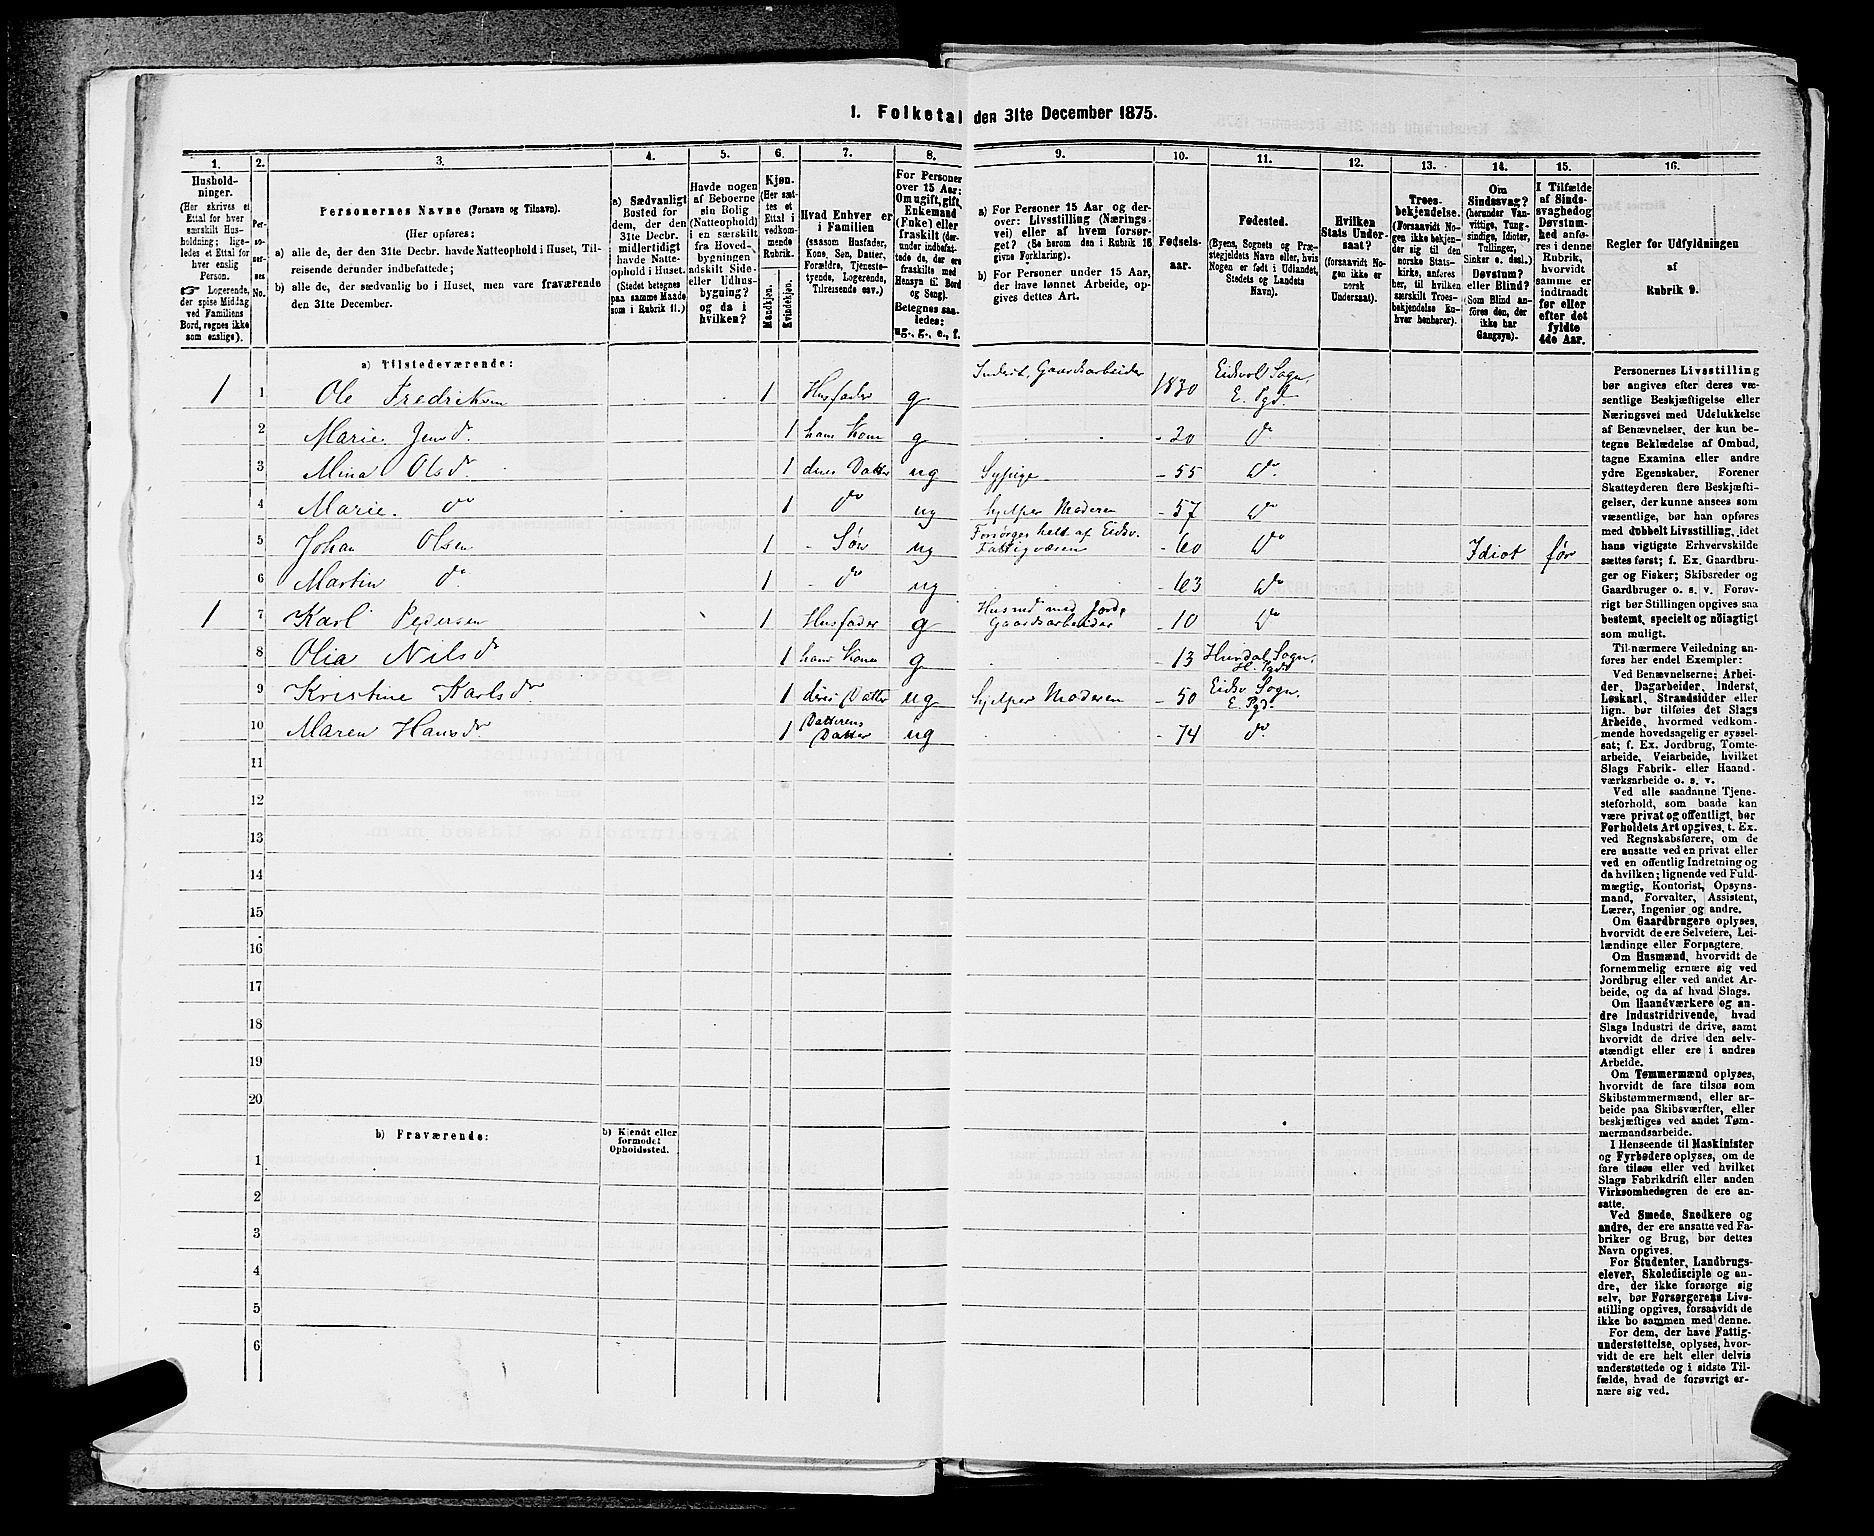 1. Folketal den 31te December 1875.
1.
Hushold-
ninger.
(Her skrives et
Ettal for hver
særskilt Hus-
holdning; lige-
ledes et Ettal for
hver enslig
Person.
☞ Logerende,
der spise Middag
ved Familiens
Bord, regnes ikke
som enslige).
2.
Per-
so-
ner-
nes
No.
3.
Personernes Navne (Fornavn og Tilnavn).
(Her opføres:
a) alle de, der den 31te Decbr. havde Natteophold i Huset, Til-
reisende derunder indbefattede;
b) alle de, der sædvanlig bo i Huset, men vare fraværende
den 31te December.
4.
a) Sædvanligt
Bosted for
dem, der den
31te Decbr.
midlertidigt
havde Natte-
ophold i Huset.
(Stedet betegnes
paa samme Maade
som i Rubrik 11.)
5.
Havde nogen
af Beboerne
sin Bolig
(Natteophold)
i en særskilt
fra Hoved-
bygningen
adskilt Side-
eller Udhus-
bygning?
og da i
hvilken?
6.
Kjøn.
(Her sæt-
tes et
Ettal i
vedkom-
mende
Rubrik.
Mandkjøn.
Kvindekjøn.
7.
Hvad Enhver er
i Familien
(saasom Husfader,
Kone, Søn, Datter,
Forældre, Tjeneste-
tyende, Logerende,
Tilreisende osv.)
8.
For Personer
over 15 Aar:
Om ugift, gift,
Enkemand
(Enke) eller
fraskilt (der-
under indbefat-
tede de, der ere
fraskilte med
Hensyn til Bord
og Seng).
Betegnes saa-
ledes:
ug., g., e., f.
9.
a) For Personer 15 Aar og der-
over: Livsstilling (Nærings-
vei) eller af hvem forsør-
get? (Se herom den i Rubrik 16
givne Forklaring).
b) For Personer under 15 Aar,
der have lønnet Arbeide, op-
gives dettes Art.
10.
Fødsels-
aar.
11.
Fødested.
(Byens, Sognets og Præ-
stegjeldets Navn eller, hvis
Nogen er født i Udlandet,
Stedets og Landets
Navn).
12.
Hvilken
Stats Under-
saat?
(forsaavidt No-
gen ikke er
norsk
Undersaat).
13.
Troes-
bekjendelse.
(Forsaavidt No-
gen ikke bekjen-
der sig til den
norske Stats-
kirke, anføres
her, til hvilken
særskilt Troes-
bekjendelse En-
hver henhører).
14.
Om
Sindssvag?
(herunder Van-
vittige, Tung-
sindige, Idioter,
Tullinger,
Sinker o. desl.).
Døvstum?
eller Blind?
(Som Blind an-
føres den, der
ikke har
Gangsyn).
15.
I Tilfælde
af Sinds-
svaghed og
Døvstum-
hed anfø-
res i denne
Rubrik,
hvorvidt
samme er
indtraadt
før eller
efter det
fyldte
4de Aar.
16.
Regler for Udfyldningen
af
Rubrik 9.
a) Tilstedeværende:
1 1 Ole Fredriksen 1 Husfader g Inderst, Gaardsarbeider 1830 Eidsvol Sogn, E. Pgd.
2 Marie Jensdr 1 hans Kone g - 20 do
3 Mina Olsdr 1 deres Datter ug Sypige - 55 do
4 Marie do 1 do ug hjelper Moderen - 57 do
5 Johan Olsen 1 - Søn ug Forsørges helt af Eidsv. Fattigvæsen - 60 do Idiot før
6 Martin do 1 - do ug - 63 do
1 7 Karl Pedersen 1 Husfader g Husmd med Jord, Gaardsarbeider - 10 do
8 Olia Nilsdr 1 hans Kone g - 13 Hurdal Sogn, H. Pgd.
9 Kristine Karlsdr 1 deres Datter ug hjelper Moderen - 50 Eidsv. Sogn, E. Pgd.
10 Maren Hansdr 1 Datterens Datter ug - 74 do
11
12
13
14
15
16
17
18
19
20
b) Fraværende:
b) Kjendt eller
formodet
Opholdssted.
1
2
3
4
5
6
Personernes Livsstilling
bør angives efter deres væ-
sentlige Beskjæftigelse eller
Næringsvei med Udelukkelse
af Benævnelser, der kun be-
tegne Beklædelse af Ombud,
tagne Examina eller andre
ydre Egenskaber. Forener
Skatteyderen flere Beskjæfti-
gelser, der kunne ansees som
væsentlige, bør han opføres
med dobbelt Livsstilling, idet
hans vigtigste Erhvervskilde
sættes først; f. Ex. Gaardbru-
ger og Fisker; Skibsreder og
Gaardbruger o. s. v. Forøv-
rigt bør Stillingen opgives saa
bestemt, specielt og nøiagtigt
som muligt.
Til nærmere Veiledning an-
føres her endel Exempler:
Ved Benævnelserne: Arbei-
der, Dagarbeider, Inderst,
Løskarl, Strandsidder eller
lign. bør tilføies det Slags
Arbeide, hvormed vedkom-
mende hovedsagelig er syssel-
sat; f. Ex. Jordbrug, Tomte-
arbeide, Veiarbeide, hvilket
Slags Fabrik- eller Haand-
værksarbeide o. s. v.
Ved alle saadanne Tjene-
steforhold, som baade kan
være privat og offentligt, bør
Forholdets Art opgives, t. Ex.
ved Regnskabsførere, om de
ere ansatte ved en privat eller
ved en offentlig Indretning og
da hvilken; lignende ved Fuld-
mægtig, Kontorist, Opsyns-
mand, Forvalter, Assistent,
Lærer, Ingeniør og andre.
Om Gaardbrugere oplyses,
hvorvidt de ere Selveiere, Lei-
lændinge eller Forpagtere.
Om Husmænd, hvorvidt de
fornemmelig ernære sig ved
Jordbrug eller ved andet Ar-
beide, og da af hvad Slags.
Om Haandværkere og an-
dre Industridrivende, hvad
Slags Industri de drive, samt
hvorvidt de drive den selv-
stændigt eller ere i andres
Arbeide.
Om Tømmermænd oplyses,
hvorvidt de fare tilsøs som
Skibstømmermænd, eller ar-
beide paa Skibsværfter, eller
beskjæftiges ved andet Tøm-
mermandsarbeide.
I Henseende til Maskinister
og Fyrbødere oplyses, om de
fare tilsøs eller ved hvilket
Slags Fabrikdrift eller anden
Virksomhedsgren de ere an-
satte.
Ved Smede, Snedkere og
andre, der ere ansatte ved Fa-
briker og Brug, bør dettes
Navn opgives.
For Studenter, Landbrugs-
elever, Skoledisciple og an-
dre, der ikke forsørge sig
selv, bør Forsørgerens Livs-
stilling opgives, forsaavidt de
ikke bo sammen med denne.
For dem, der have Fattig-
understøttelse, oplyses, hvor-
vidt de ere helt eller delvis
understøttede og i sidste Til-
fælde, hvad de forøvrigt er-
nære sig ved.